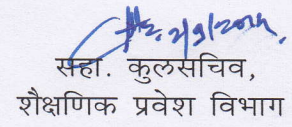 सहा. कुलसचिव,
शैक्षणिक प्रवेश विभाग